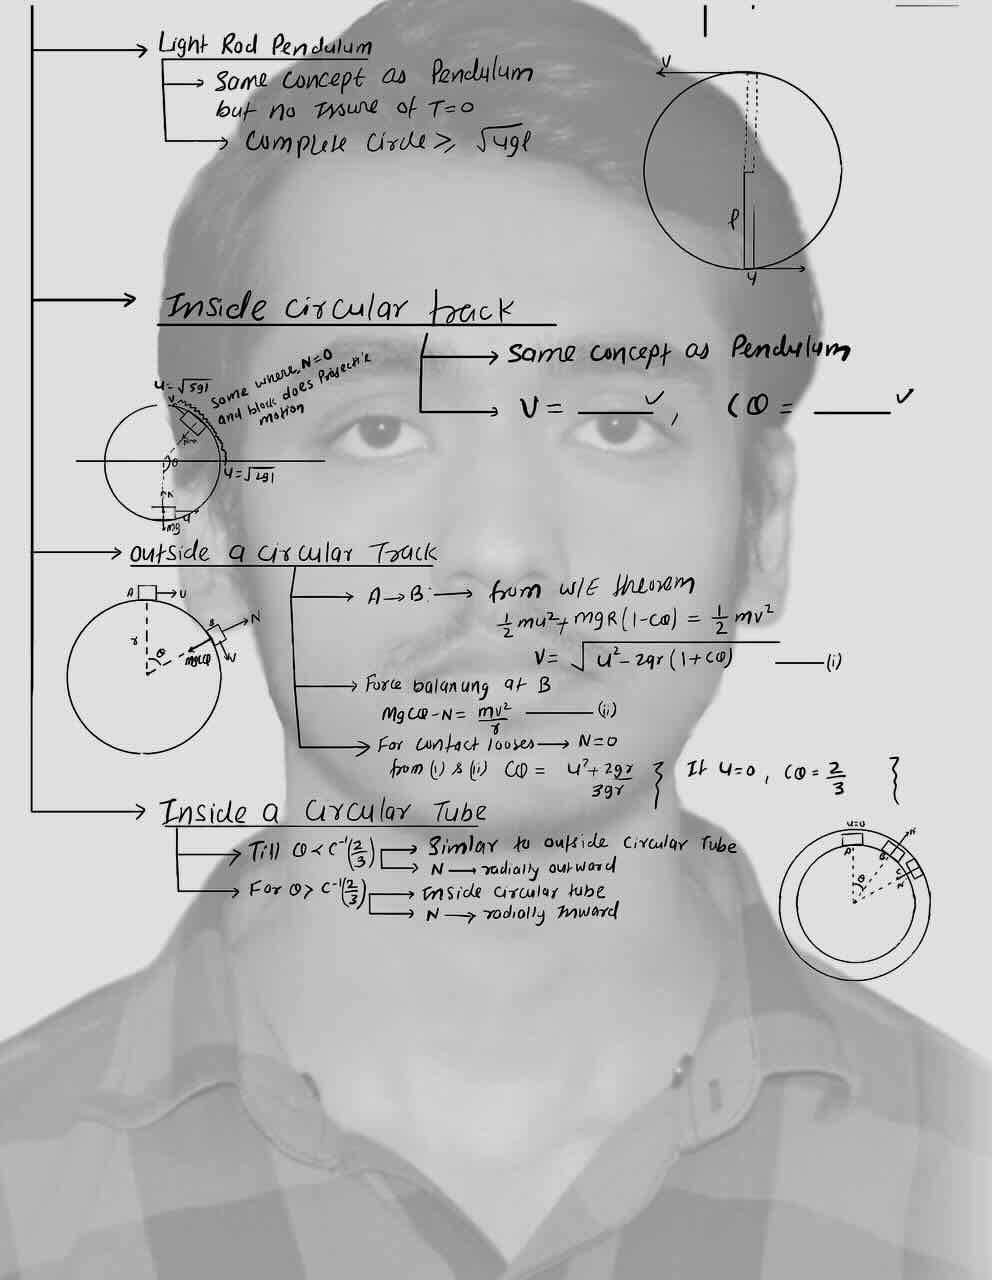 Light Rod Pendulum
Same concept as Pendulum
but no issure of T=0
Complete Circle ⩾ √4gl
V
l
u
Inside circular track
Same concept as Pendulum
V = ____ ✓, Cθ = ____ ✓
u=√5gl
Some where, N=0
and block does Projectile
motion
V
θ
u=√2gl
N
u
mg
Outside a circular Track
A→B:→ from W/E theorem
½mu²+mgR(1-cθ) = ½mv²
V= √u²-2gr(1+cθ) —(i)
A
u
B
N
r
θ
mgcθ
V
Force balanung at B
Mgcθ-N= mv²/r —(ii)
For contact looses → N=0
from (i) & (ii) Cθ = u²+2gr/3gr } If u=0, cθ=2/3 }
Inside a Circular Tube
Till θ<c⁻¹(2/3) → Similar to outside circular Tube
N → radially outward
For θ> c⁻¹(2/3) → Inside circular tube
N → radially inward
u=0
A
B
N
C
θ
N